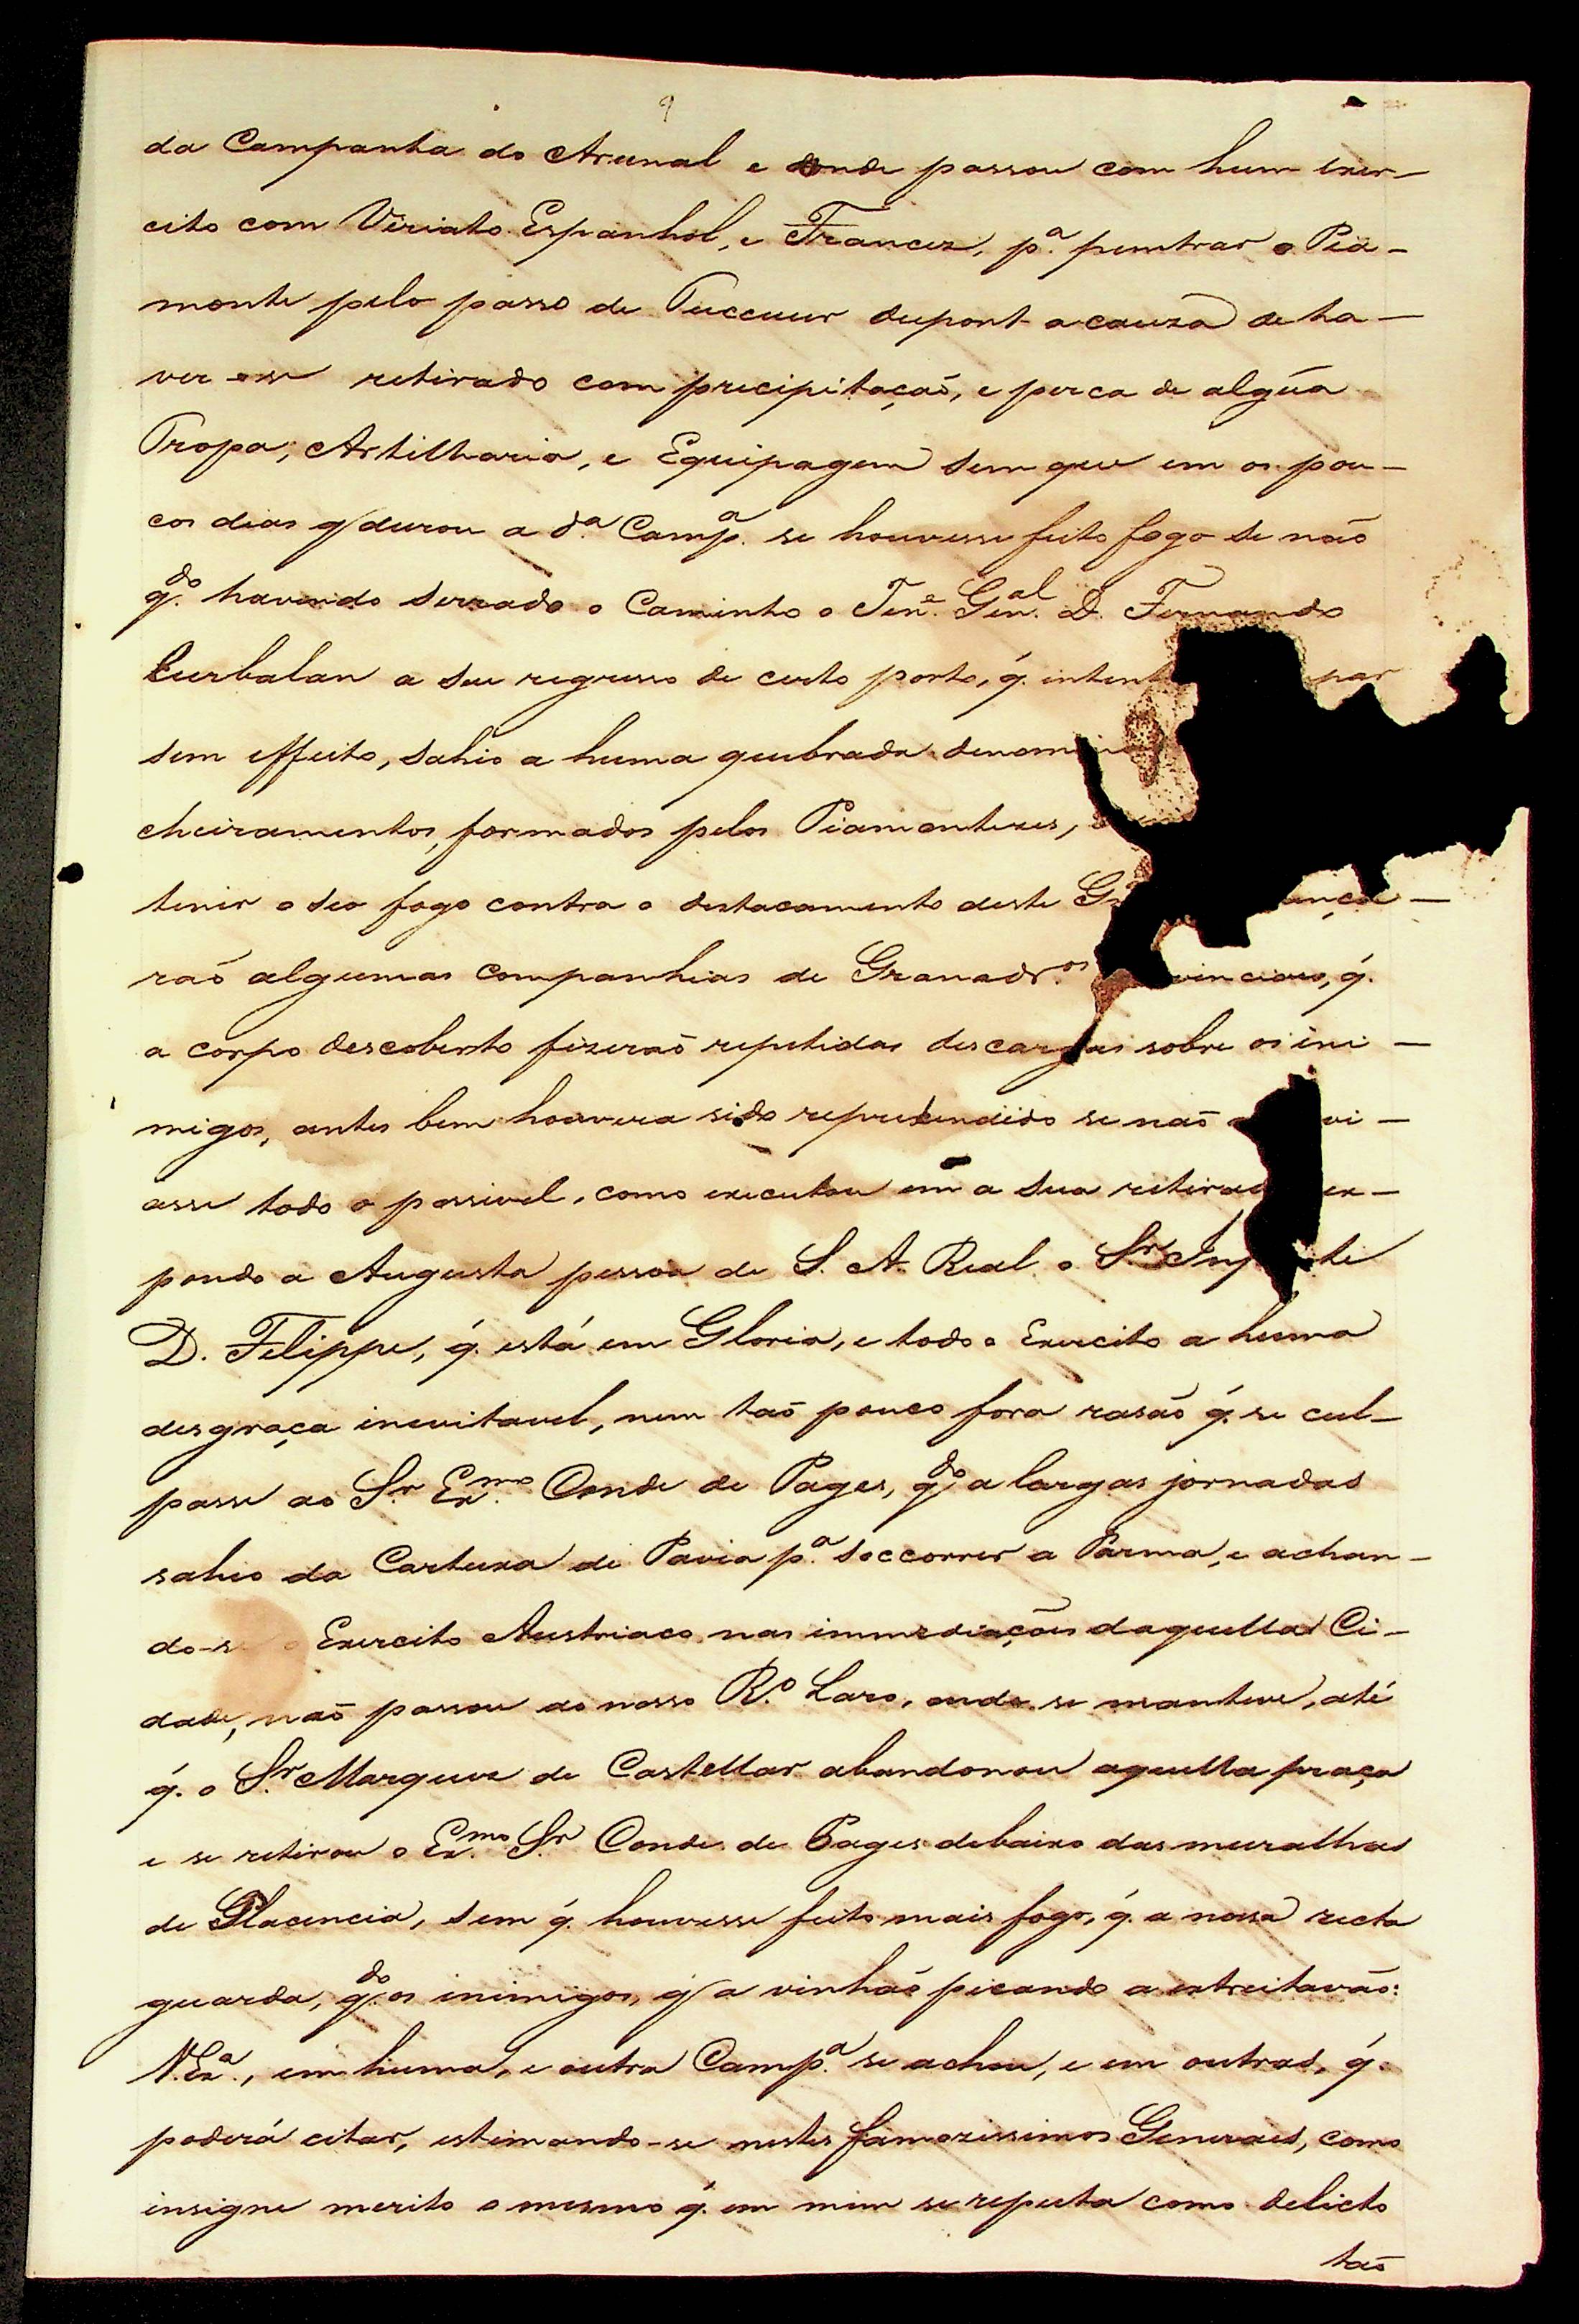 9
da Campanha do Arunal e donde passou com hum exer-
cito com Viriato Espanhol, e Francez, pª. penetrar o Pia-
monte pelo passo de Tuccuur dupont a cauza de ha-
ver-se retirado com precipitaçaõ, e perca de algũa
Tropa, Artilharia, e Equipagem sem que em os pou-
cos dias q durou a dª. Campª. se houvesse feito fogo se naõ
qdo. havendo serrado o Caminho o Tene. Genal. D. Fernando
Curbalan a seu regresso de certo porto, q́. intent par
sem effeito, sahio a huma quebrada denomin
cheiramentos, formados pelos Piamontezes,
tenir o seo fogo contra o destacamento deste G ança-
raõ algumas companhias de Granadros. vinciaes, q́.
a corpo descoberto fizeraõ repetidas descargas sobre os ini-
migos, antes bem houvera sido reprehendido se naõ vi-
asse todo o possivel, como executou em a sua retirad ex-
pondo a Augusta pessoa de S. A. Real o Sr. Infante
D. Felippe, q́. está em Gloria, e todo o Exercito a huma
desgraça inevitavel, nem taõ pouco fora rasaõ q́. se cul-
passe ao Sr. Exmo. Conde de Pages, qdo. a largas jornadas
sahio da Cartuxa de Pavia pª. soccorrer a Parma, e achan-
do-s o Exercito Austriaco nas immediações daquella Ci-
dade, naõ passou do nosso R.º Laro, onde se manteve, até
q́. o Sr. Marquez de Castellar abandonou aquella praça
e se retirou o Exmo. Sr. Conde de Pages debaixo das muralhas
de Placencia, sem q́. houvesse feito mais fogo, q́. a nossa recta
guarda, qdo. os inimigos, q a vinhaõ picando a estreitavão:
V. Exª., em huma, e outra Campª. se achou, e em outras, q́.
poderá citar, estimando-se nestes famozissimos Generaes, como
insigne merito o mesmo q́. em mim se reputa como delicto
taõ